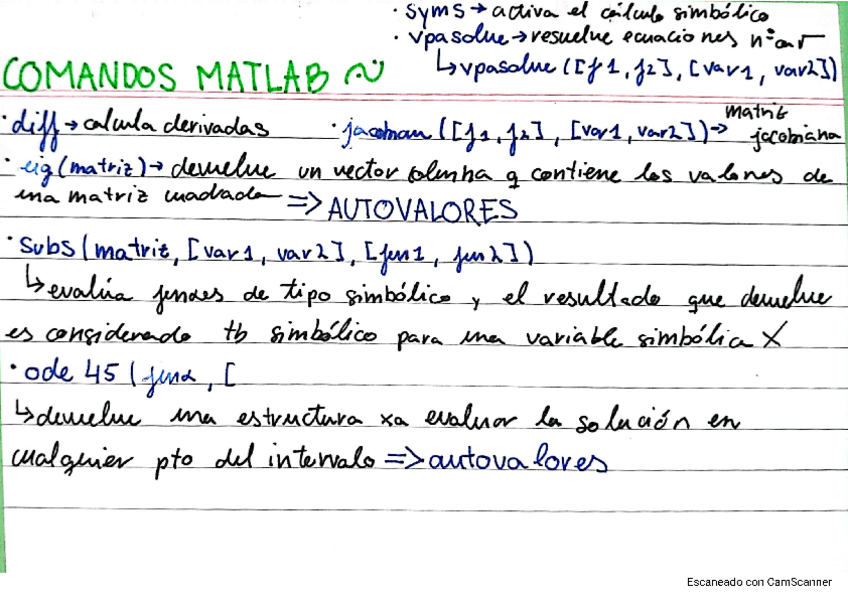 · syms → activa el cálculo simbólico
· vpasolve → resuelve ecuaciones
↳ vpasolve ([f1, f2], [var1, var2])
COMANDOS MATLAB
· diff → calcula derivadas
· jacobian ([f1, f2], [var1, var2]) → matriz jacobiana
· eig (matriz) → devuelve un vector columna q contiene los valores de
una matriz cuadrada => AUTOVALORES
· subs (matriz, [var1, var2], [fun1, fun2])
↳ evalúa de tipo simbólico y el resultado que devuelve
es considerado tb simbólico para una variable simbólica X
· ode 45 (, [
↳ devuelve una estructura xa evaluar la solución en
cualquier pto del intervalo => autovalores
Escaneado con CamScanner